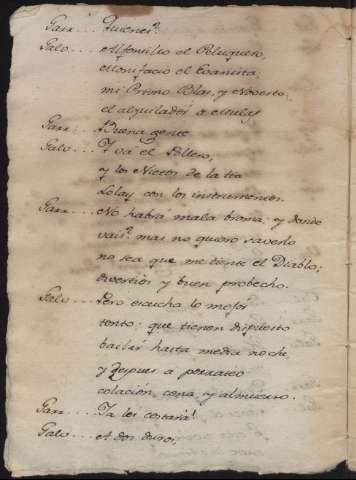 Garr... Quienes?
Galo... Alfonsillo el Peluquero,
Bonifacio el
mi Primo Blas, y Noverto,
el alquilador de Mulas
Garr... Buena gente
Galo... Y vá el Pollero,
y los Nietos de la tia
Lolay con los instrumentos.
Garr... No habrá mala broma: y donde
vais? mas no quiero saverlo
no sea que me tiente el Diablo;
divertios y buen probecho.
Galo... Pero escucha lo mejor
tonto: que tienen dispuesto
bailar hasta media noche,
y despues a
colación, cena, y almuerzo.
Garr... Ya les costará!
Galo... A dos duros,